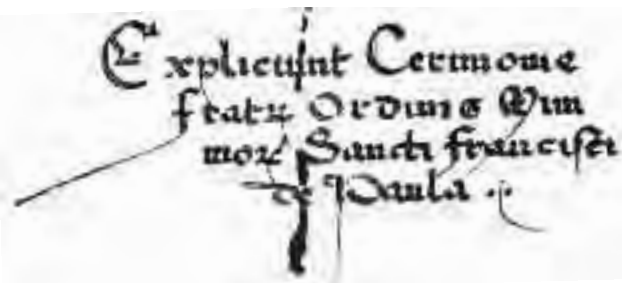 Expliciunt Cerimonie
fratꝝ Ordinis Mini
moꝝ Sancti francisci
de Paula ..